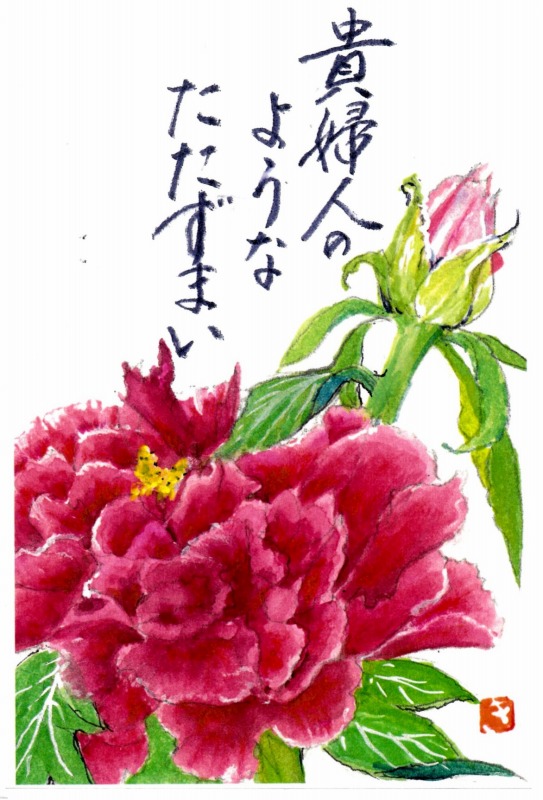 貴婦人の
ような
たたずまい